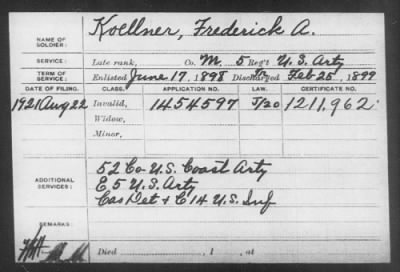 NAME OF SOLDIER: Koellner, Frederick A.
SERVICE: Late rank, Co. M. 5 Reg't U.S. Arty
TERM OF SERVICE: Enlisted June 17, 1898 Discharged Feb 25, 1899
DATE OF FILING. CLASS. APPLICATION NO. LAW. CERTIFICATE NO.
1921 Aug 22 Invalid, 1454597 J/20 1211,962
Widow,
Minor,
ADDITIONAL SERVICES: 52 Co U.S. Coast Arty
E 5 U.S. Arty
Cas Det + C 14 U.S. Inf
REMARKS:
Died , 1 , at